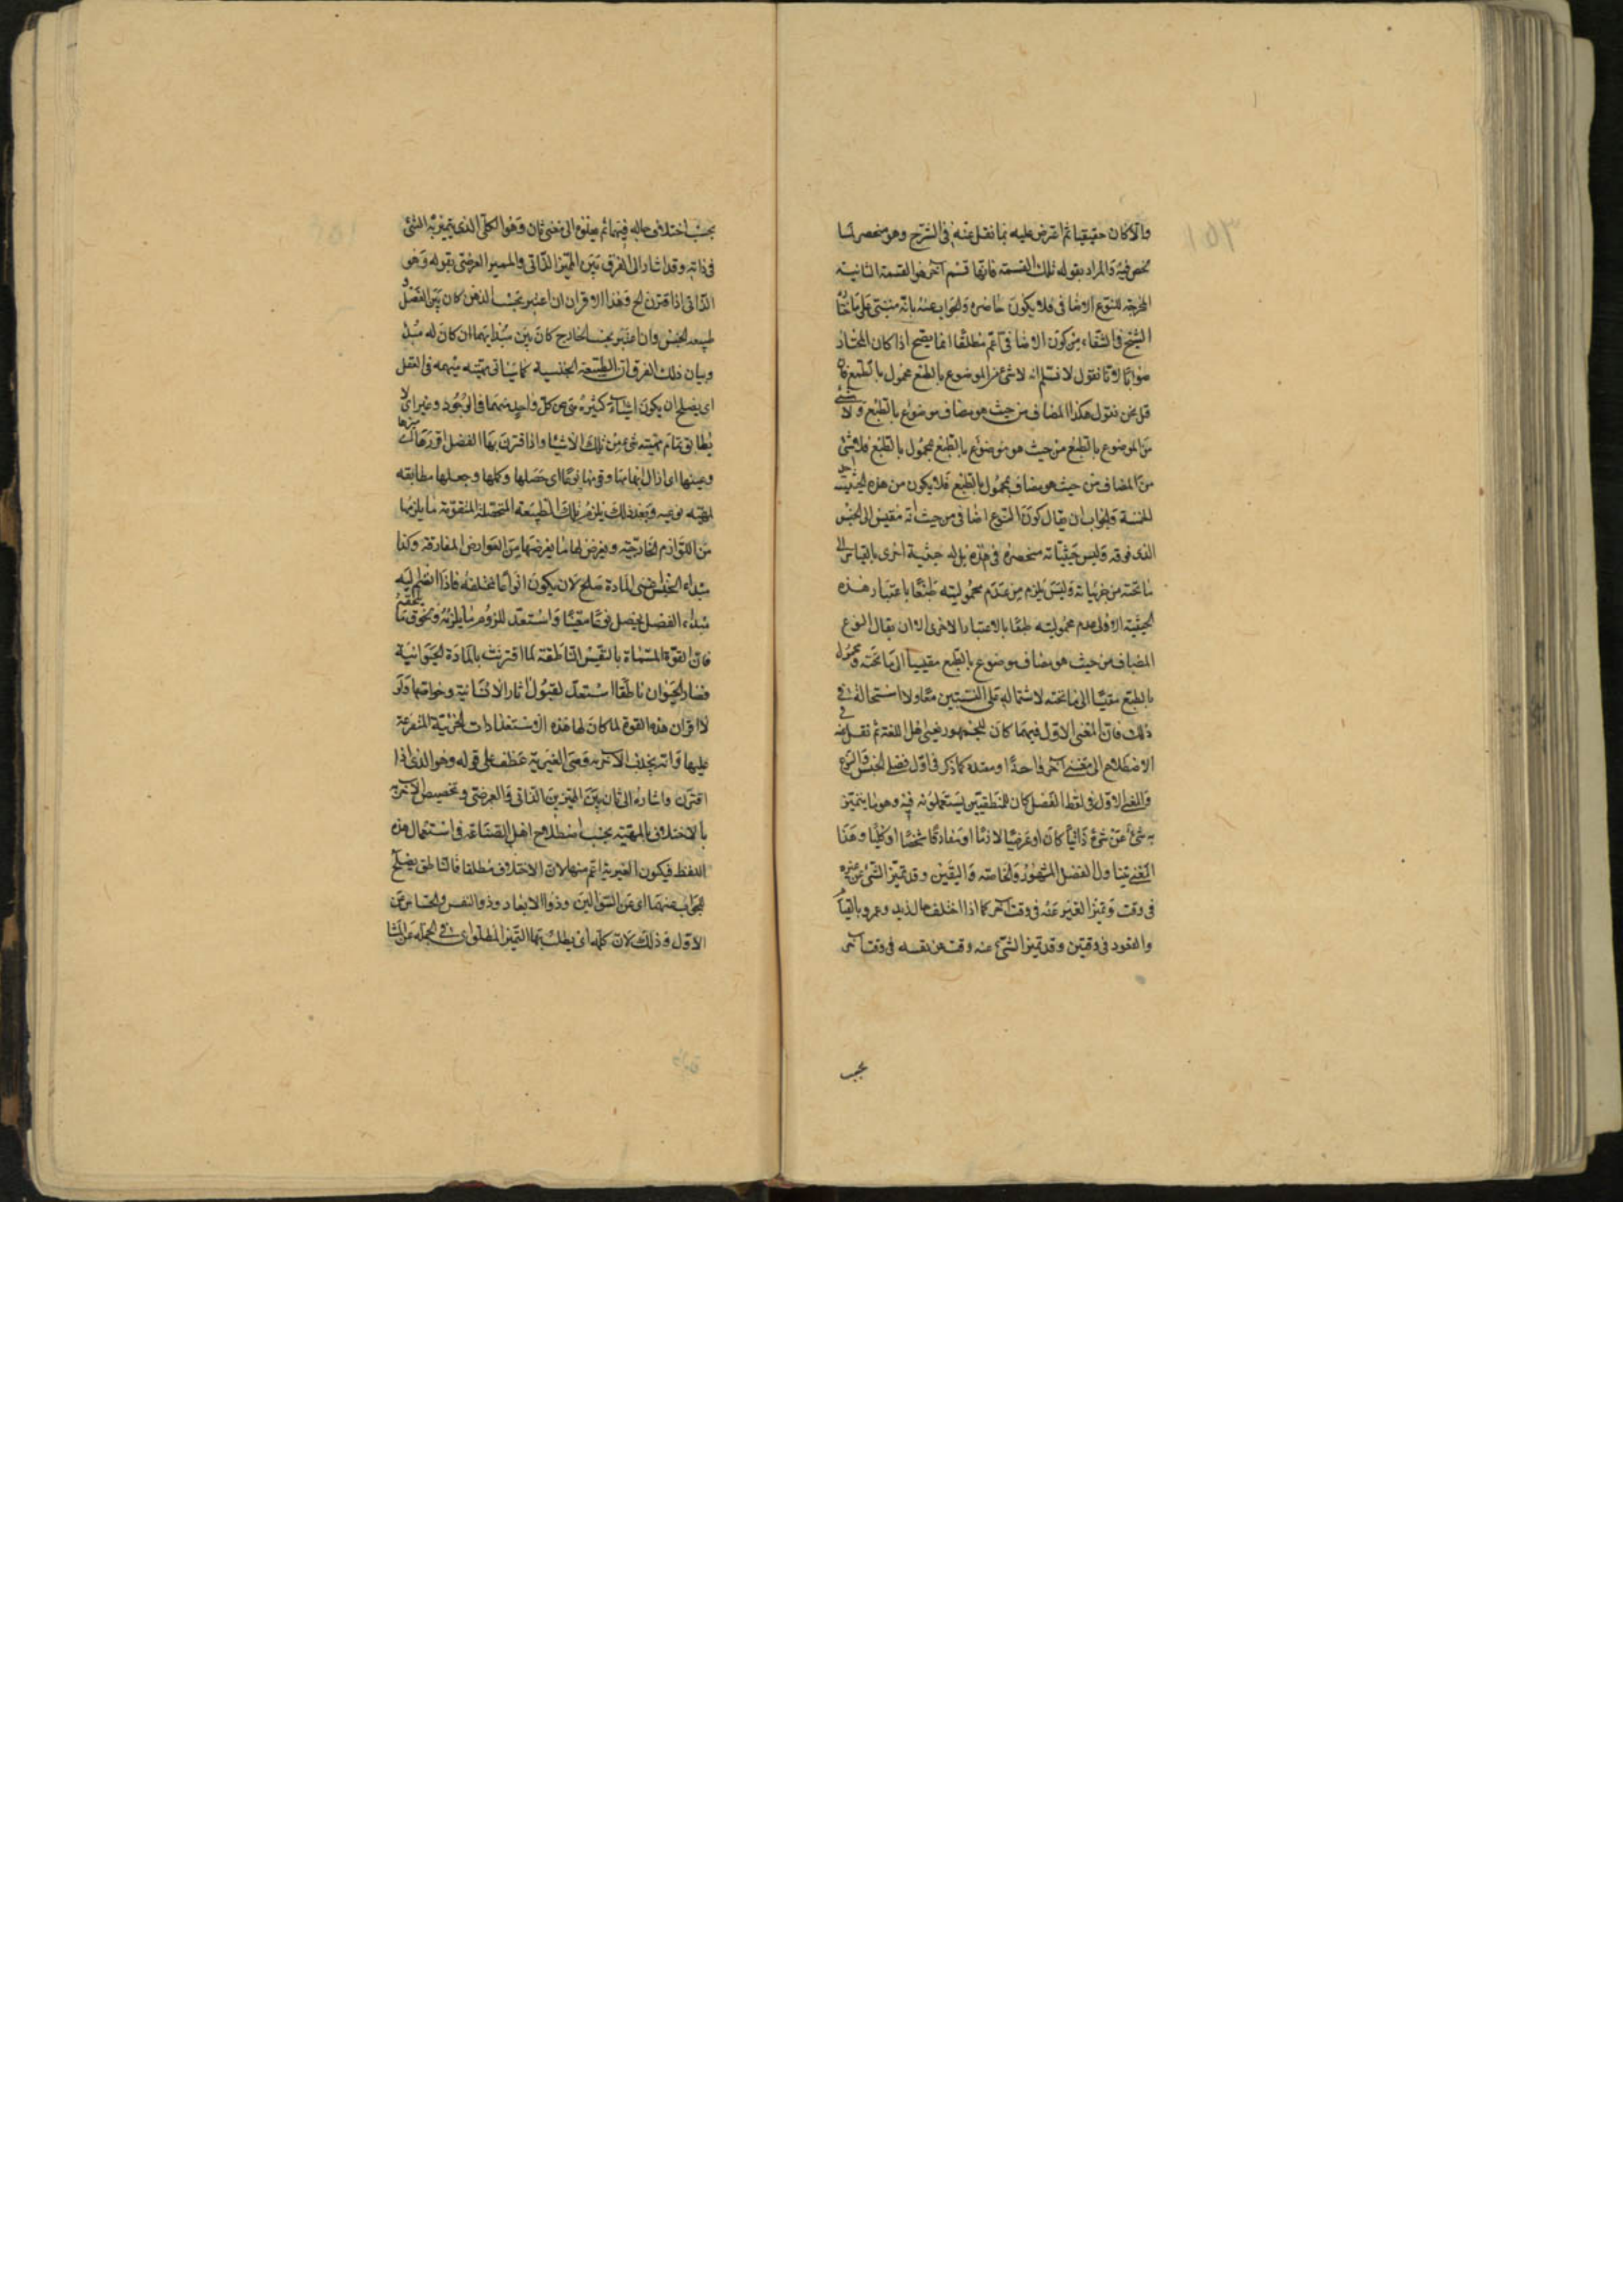 والا لكان حقيقيا ثم اعترض عليه بما نقل عنه في الشرح وهو منحصر لما
فيه والمراد بقوله تلك القسمة فانها قسم آخر هو القسمة الثانية
المخرجة للنوع الاضافي فلا يكون حاضره والجواب عنه بانه مبتنى على ما
الشيخ في الشفاء من كون الاضافي اعم مطلقا انما يصح اذا كان المختار
صوابا لانا نقول لا نسلم انه لا شئ من الموضوع بالطبع محمول بالطبع فان
قيل نحن نقول هكذا المضاف من حيث هو مضاف موضوع بالطبع ولا شئ
من الموضوع بالطبع من حيث هو موضوع بالطبع محمول بالطبع فلا شئ
من المضاف من حيث هو مضاف محمول بالطبع فلا يكون من هذه الحيثية احد
الخمسة والجواب ان يقال كون النوع اضافي من حيث انه مقيس الى الجنس
الذى فوقه وليس حيثياته منحصرة في هذه بل له حيثية اخرى بالقياس الى
ما تحته من جزئياته وليس يلزم من عدم محموليته طبعا باعتبار هذه
الحيثية الاولى عدم محموليته طبعا بالاعتبار الاخرى الا ان يقال النوع
المضاف من حيث هو مضاف موضوع بالطبع مقيسا الى ما تحته ومحمول
بالطبع مقيسا الى ما تحته لاشتماله على النسبتين معا ولا استحالة في
ذلك فان المعنى الاول فيهما كان للجمهور يعنى اهل اللغة ثم نقل في
الاصطلاح الى معنى آخر واحدا ومتعدد كما ذكر في اول فصلى الجنس والنوع
والمعنى الاول في لفظ الفصل كان للمنطقيين يستعملونه فيه وهو ما يتميز
به شئ عن شئ ذاتيا كان او عرضيا لازما او مفارقا شخصا او كليا وهذا
المعنى يتناول الفصل المشهور والخاصة والتعين وقد تميز الشئ عن غيره
في وقت وتميز الغير عنه في وقت آخر كما اذا اختلف حال زيد وعمرو بالقيام
والقعود في وقتين وقد تميز الشئ عنه وقت عن نفسه في وقت آخر
بحسب
بحسب اختلاف حاله فيهما ثم منقوله الى معنى ثان وهو الكلى الذى يتميز به الشئ
في ذاته وقد اشار الى الفرق بين المميز الذاتى والمميز العرضى بقوله وهو
الذاتى اذا اقترن الخ وهذا الاقتران ان اعتبر بحسب الذهن كان بين الفصل و
طبيعة الجنس وان اعتبر بحسب الخارج كان بين مبدأيهما ان كان له مبدأ
وبيان ذلك الفرق ان الطبيعة الجنسية كما سيأتى مهيته مبهمة في العقل
اى يصلح ان يكون اشياء كثيرة هى عين كل واحد منهما في الوجود وغير اى لا
يطابق تمام مهيته شئ من تلك الاشياء واذا اقترن بها الفصل افرزها اى ميزها
وعينها اى ازال ابهامها وقومها نوعا اى حصلها وكملها وجعلها مطابقه
لمهيته نوعيه وبعد ذلك يلزم تلك الطبيعة المتحصلة المتقومة ما يلزمها
من اللوازم الخارجية ويعرض لها ما يعرضها من العوارض المفارقة وكذا
مبداء الجنس اعنى المادة صلح لان يكون انواعا مختلفة فاذا انضم اليه
مبداء الفصل تحصل نوعا معينا واستعد للزوم ما يلزمه ولحوق ما يلحقه
فان القوة المسماة بالنفس الناطقة لما اقترنت بالمادة الحيوانية
فصار الحيوان ناطقا استعد لقبول آثار الانسانية وخواصها ولو
لا اقتران هذه القوة لما كان لها هذه الاستعدادات الجزئية المتفرعة
عليها وانه يجذب الآخرة ومعنى الغيرية عطف على قوله وهو الذى اذا
اقترن واشارة الى ثان بين المميزين الذاتى والعرضى وتخصيص الآخرية
بالاختلاف بالمهية بحسب اصطلاح اهل الصناعة في استعمال هذه
اللفظ فيكون الغيرية اعم منها لان الاختلاف مطلقا فالناطق يصلح
للجواب عنهما اى عن السؤالين وذو الابعاد وذو النفس والحساس عن
الاول وذلك لان كلمة اى يطلب بها التميز المطلق اى في الجملة عن